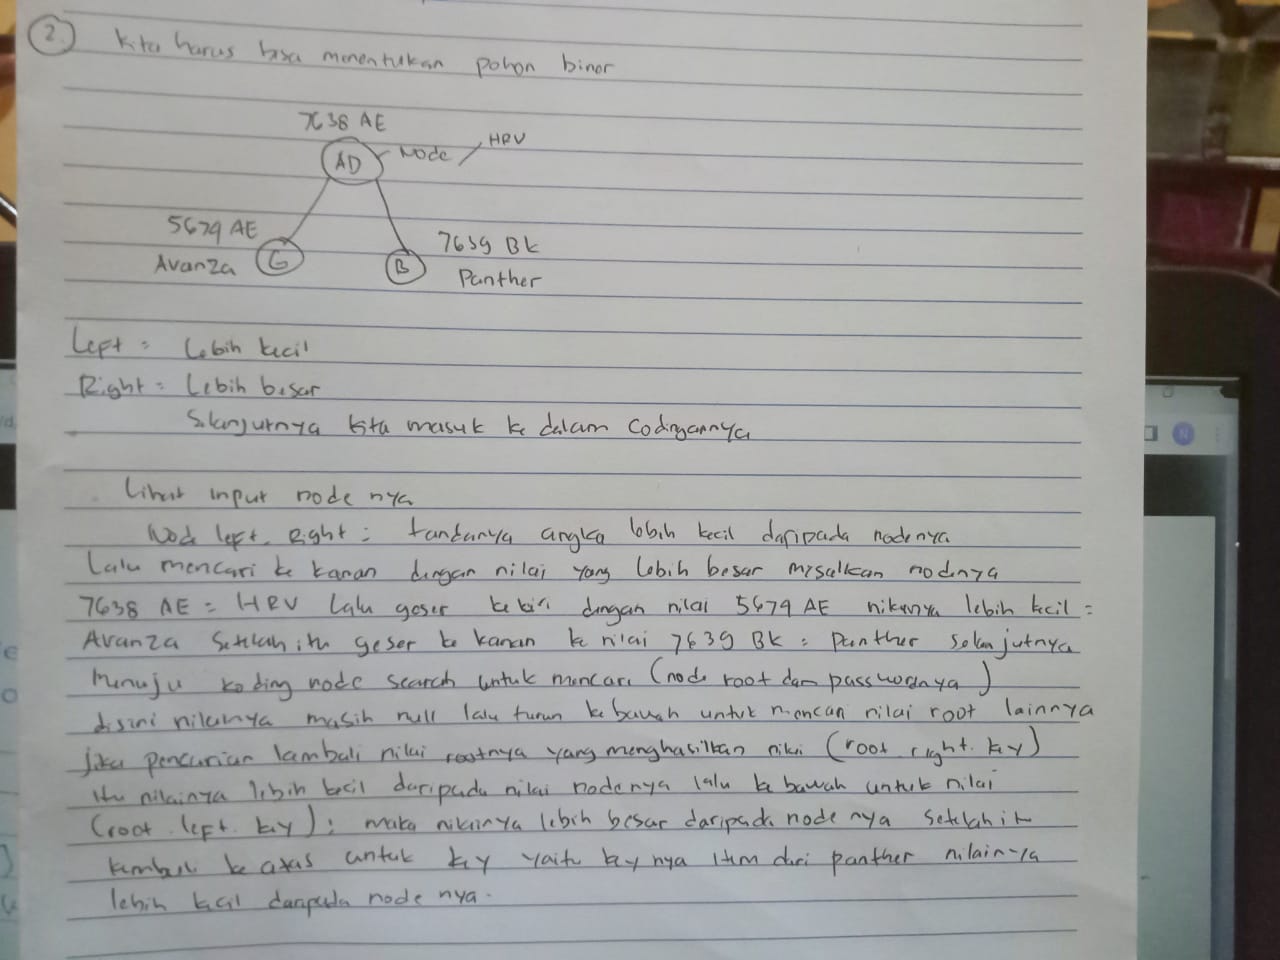 2.
Kita harus bisa menentukan pohon biner
7638 AE
AD
Node / HRV
5679 AE
Avanza
G
B
7639 BK
Panther
Left = Lebih kecil
Right = Lebih besar
Selanjutnya kita masuk ke dalam codingannya
Lihat input node nya
Node left. Right : tandanya angka lebih kecil daripada nodenya
Lalu mencari ke kanan dengan nilai yang lebih besar misalkan nodenya
7638 AE = HRV lalu geser ke kiri dengan nilai 5679 AE nilainya lebih kecil =
Avanza Setelah itu geser ke kanan ke nilai 7639 BK = panther selanjutnya
menuju koding node search untuk mencari (node root dan passwordnya)
disini nilainya masih null lalu turun ke bawah untuk mencari nilai root lainnya
jika pencarian kembali nilai rootnya yang menghasilkan nilai (root right. key)
itu nilainya lebih kecil daripada nilai nodenya lalu ke bawah untuk nilai
(root. left. key) ; maka nilainya lebih besar daripada node nya Setelah itu
kembali ke atas untuk key yaitu key nya item dari panther nilainya
lebih kecil daripada node nya.